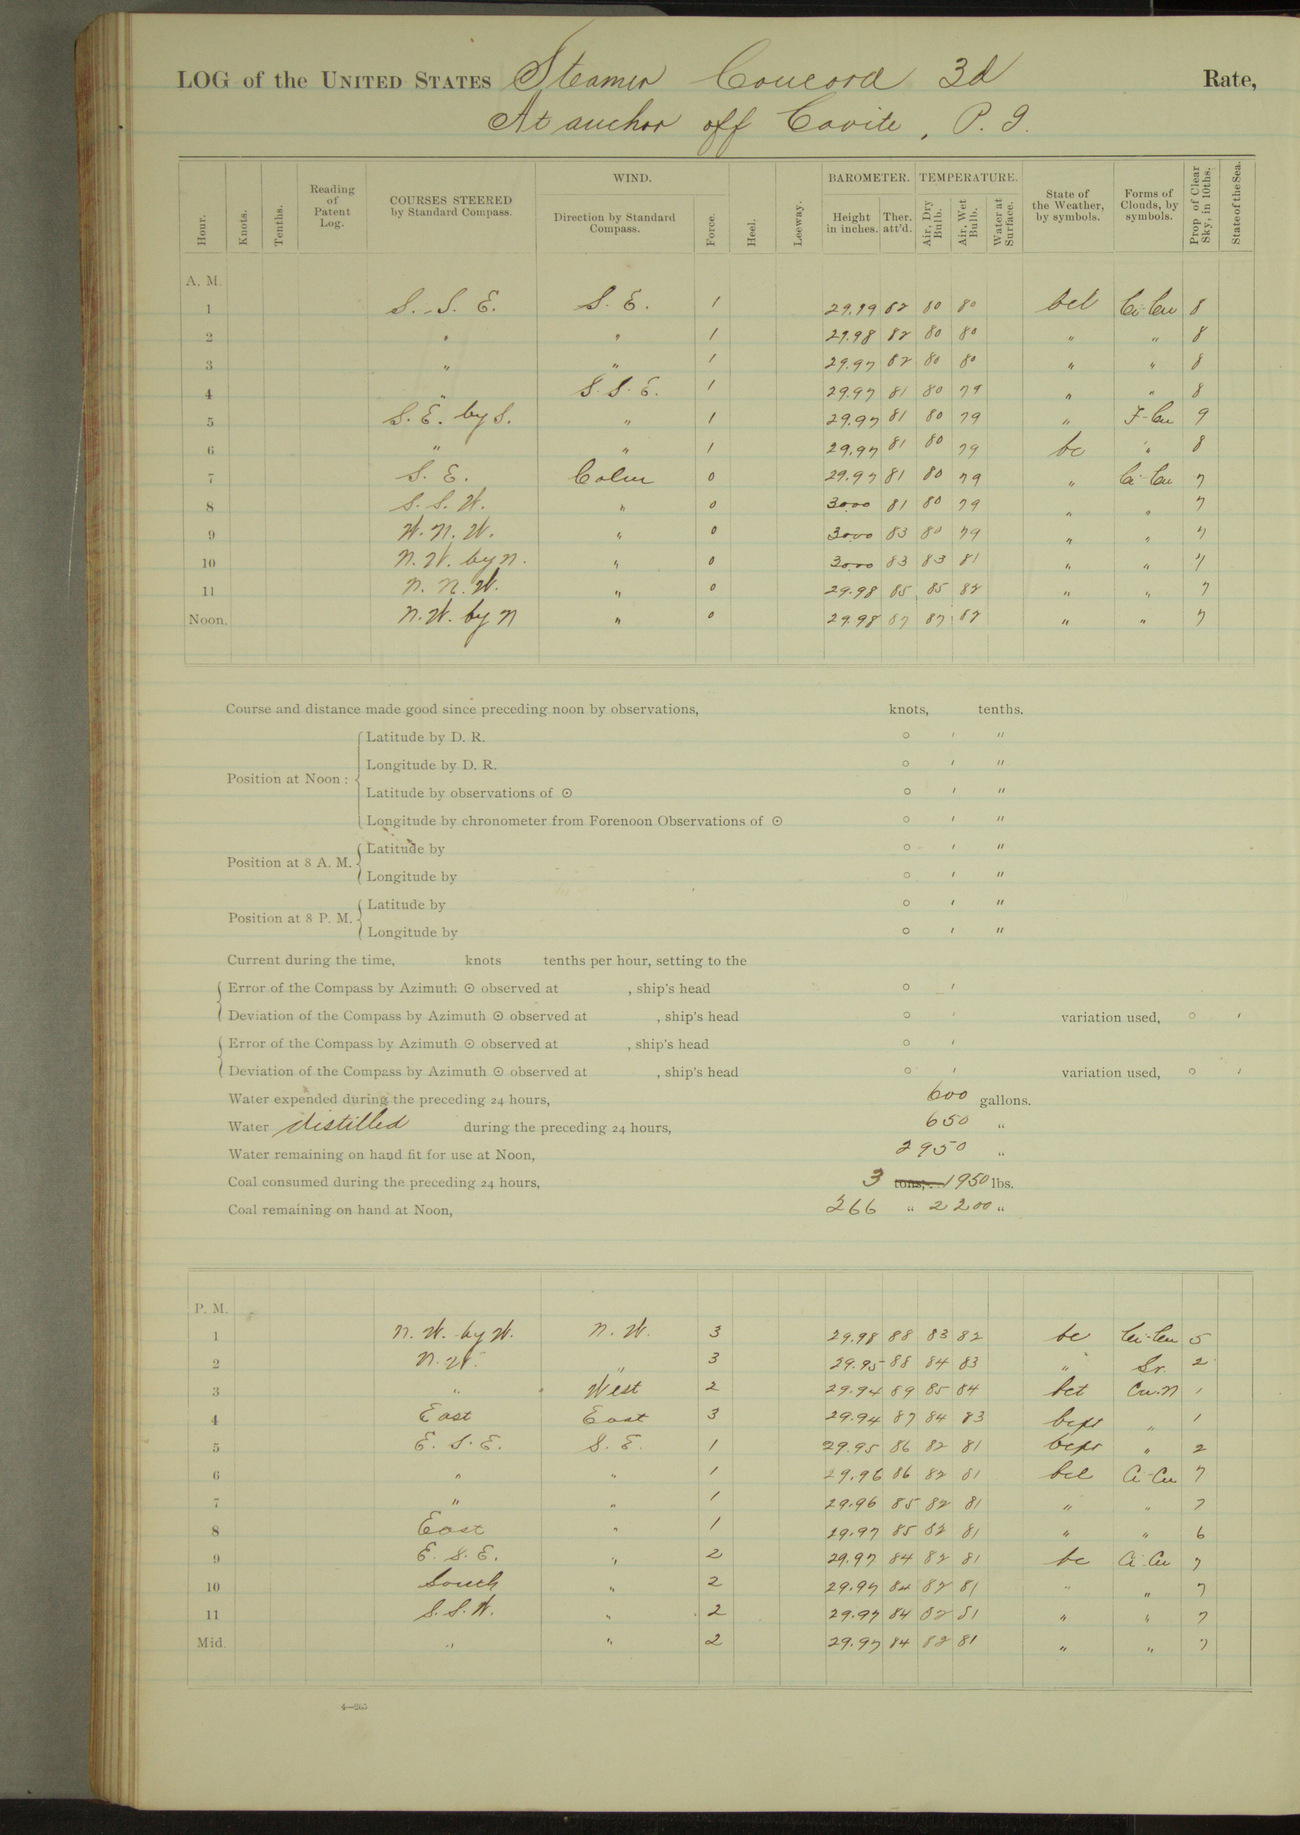 LOG of the UNITED STATES Steamer Concord 3d Rate,
At anchor off Cavite, P. I.
Hour. Knots. Tenths. Reading of Patent Log. COURSES STEERED by Standard Compass. WIND. Direction by Standard Compass. Force. Heel. Leeway. BAROMETER. Height in inches. Ther. att'd. TEMPERATURE. Air, Dry Bulb. Air, Wet Bulb. Water at Surface. State of the Weather, by symbols. Forms of Clouds, by symbols. Prop of Clear Sky, in 10ths. State of the Sea.
A. M.
1 S. S. E. S. E. 1 29.99 82 80 80 bcl Ci-Cu 8
2 " " 1 29.98 82 80 80 " " 8
3 " " 1 29.97 82 80 80 " " 8
4 " S. S. E. 1 29.97 81 80 79 " " 8
5 S. E. by S. " 1 29.97 81 80 79 " F-Cu 9
6 " " 1 29.97 81 80 79 bc " 8
7 S. E. Calm 0 29.97 81 80 79 " Ci-Cu 7
8 S. S. W. " 0 30.00 81 80 79 " " 7
9 W. N. W. " 0 30.00 83 80 79 " " 7
10 N. W. by N. " 0 30.00 83 83 81 " " 7
11 N. N. W. " 0 29.98 85 85 82 " " 7
Noon. N. W. by N " 0 29.98 87 87 82 " " 7
Course and distance made good since preceding noon by observations, knots, tenths.
Position at Noon: Latitude by D. R. ° ' "
Longitude by D. R. ° ' "
Latitude by observations of ☉ ° ' "
Longitude by chronometer from Forenoon Observations of ☉ ° ' "
Position at 8 A. M. Latitude by ° ' "
Longitude by ° ' "
Position at 8 P. M. Latitude by ° ' "
Longitude by ° ' "
Current during the time, knots tenths per hour, setting to the
Error of the Compass by Azimuth ☉ observed at , ship's head ° '
Deviation of the Compass by Azimuth ☉ observed at , ship's head ° ' variation used, ° '
Error of the Compass by Azimuth ☉ observed at , ship's head ° '
Deviation of the Compass by Azimuth ☉ observed at , ship's head ° ' variation used, ° '
Water expended during the preceding 24 hours, 600 gallons.
Water distilled during the preceding 24 hours, 650 "
Water remaining on hand fit for use at Noon, 2950 "
Coal consumed during the preceding 24 hours, 3 tons, 1950 lbs.
Coal remaining on hand at Noon, 266 " 2200 "
P. M.
1 N. W. by W. N. W. 3 29.98 88 83 82 bc Ci-Cu 5
2 N. W. " 3 29.95 88 84 83 " Sr. 2
3 " West 2 29.94 89 85 84 bct Cu.N 1
4 East East 3 29.94 87 84 83 bcpr " 1
5 E. S. E. S. E. 1 29.95 86 82 81 bcpr " 2
6 " " 1 29.96 86 82 81 bcl Ci-Cu 7
7 " " 1 29.96 85 82 81 " " 7
8 East " 1 29.97 85 82 81 " " 6
9 E. S. E. " 2 29.97 84 82 81 bc Ci-Cu 7
10 South " 2 29.97 84 82 81 " " 7
11 S. S. W. " 2 29.97 84 82 81 " " 7
Mid. " " 2 29.97 84 82 81 " " 7